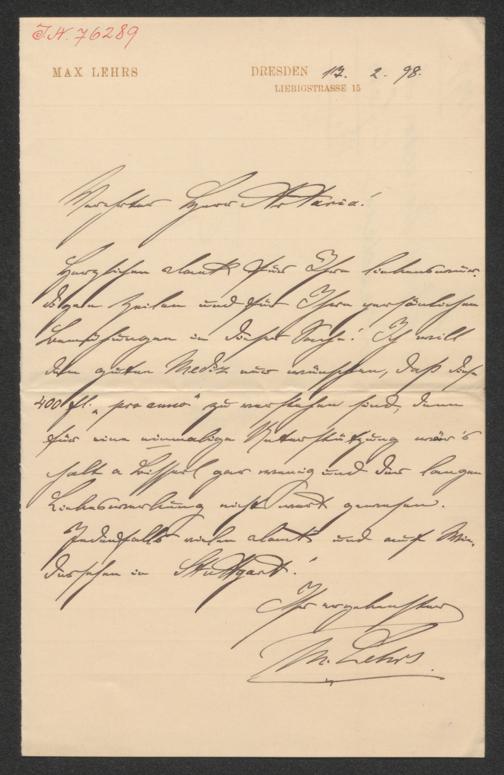 I.N. 76289
MAX LEHRS
DRESDEN 17. 2. 98.
LIEBIGSTRASSE 15
Verehrter Herr Artaria!
Herzlichen Dank für Ihre liebenswür-
digen Zeilen und für Ihre persönlichen
Bemühungen in dieser Sache! Ich will
dem guten Medix nur wünschen, daß diese
400 fl. „pro anno" zu verstehen sind, denn
für eine einmalige Unterstützung wär's
halt a bisserl gar wenig und der langen
Liebeswerbung nicht wert gewesen.
Jedenfalls vielen Dank und auf Wie-
dersehen in Stuttgart!
Ihr ergebenster
M. Lehrs.